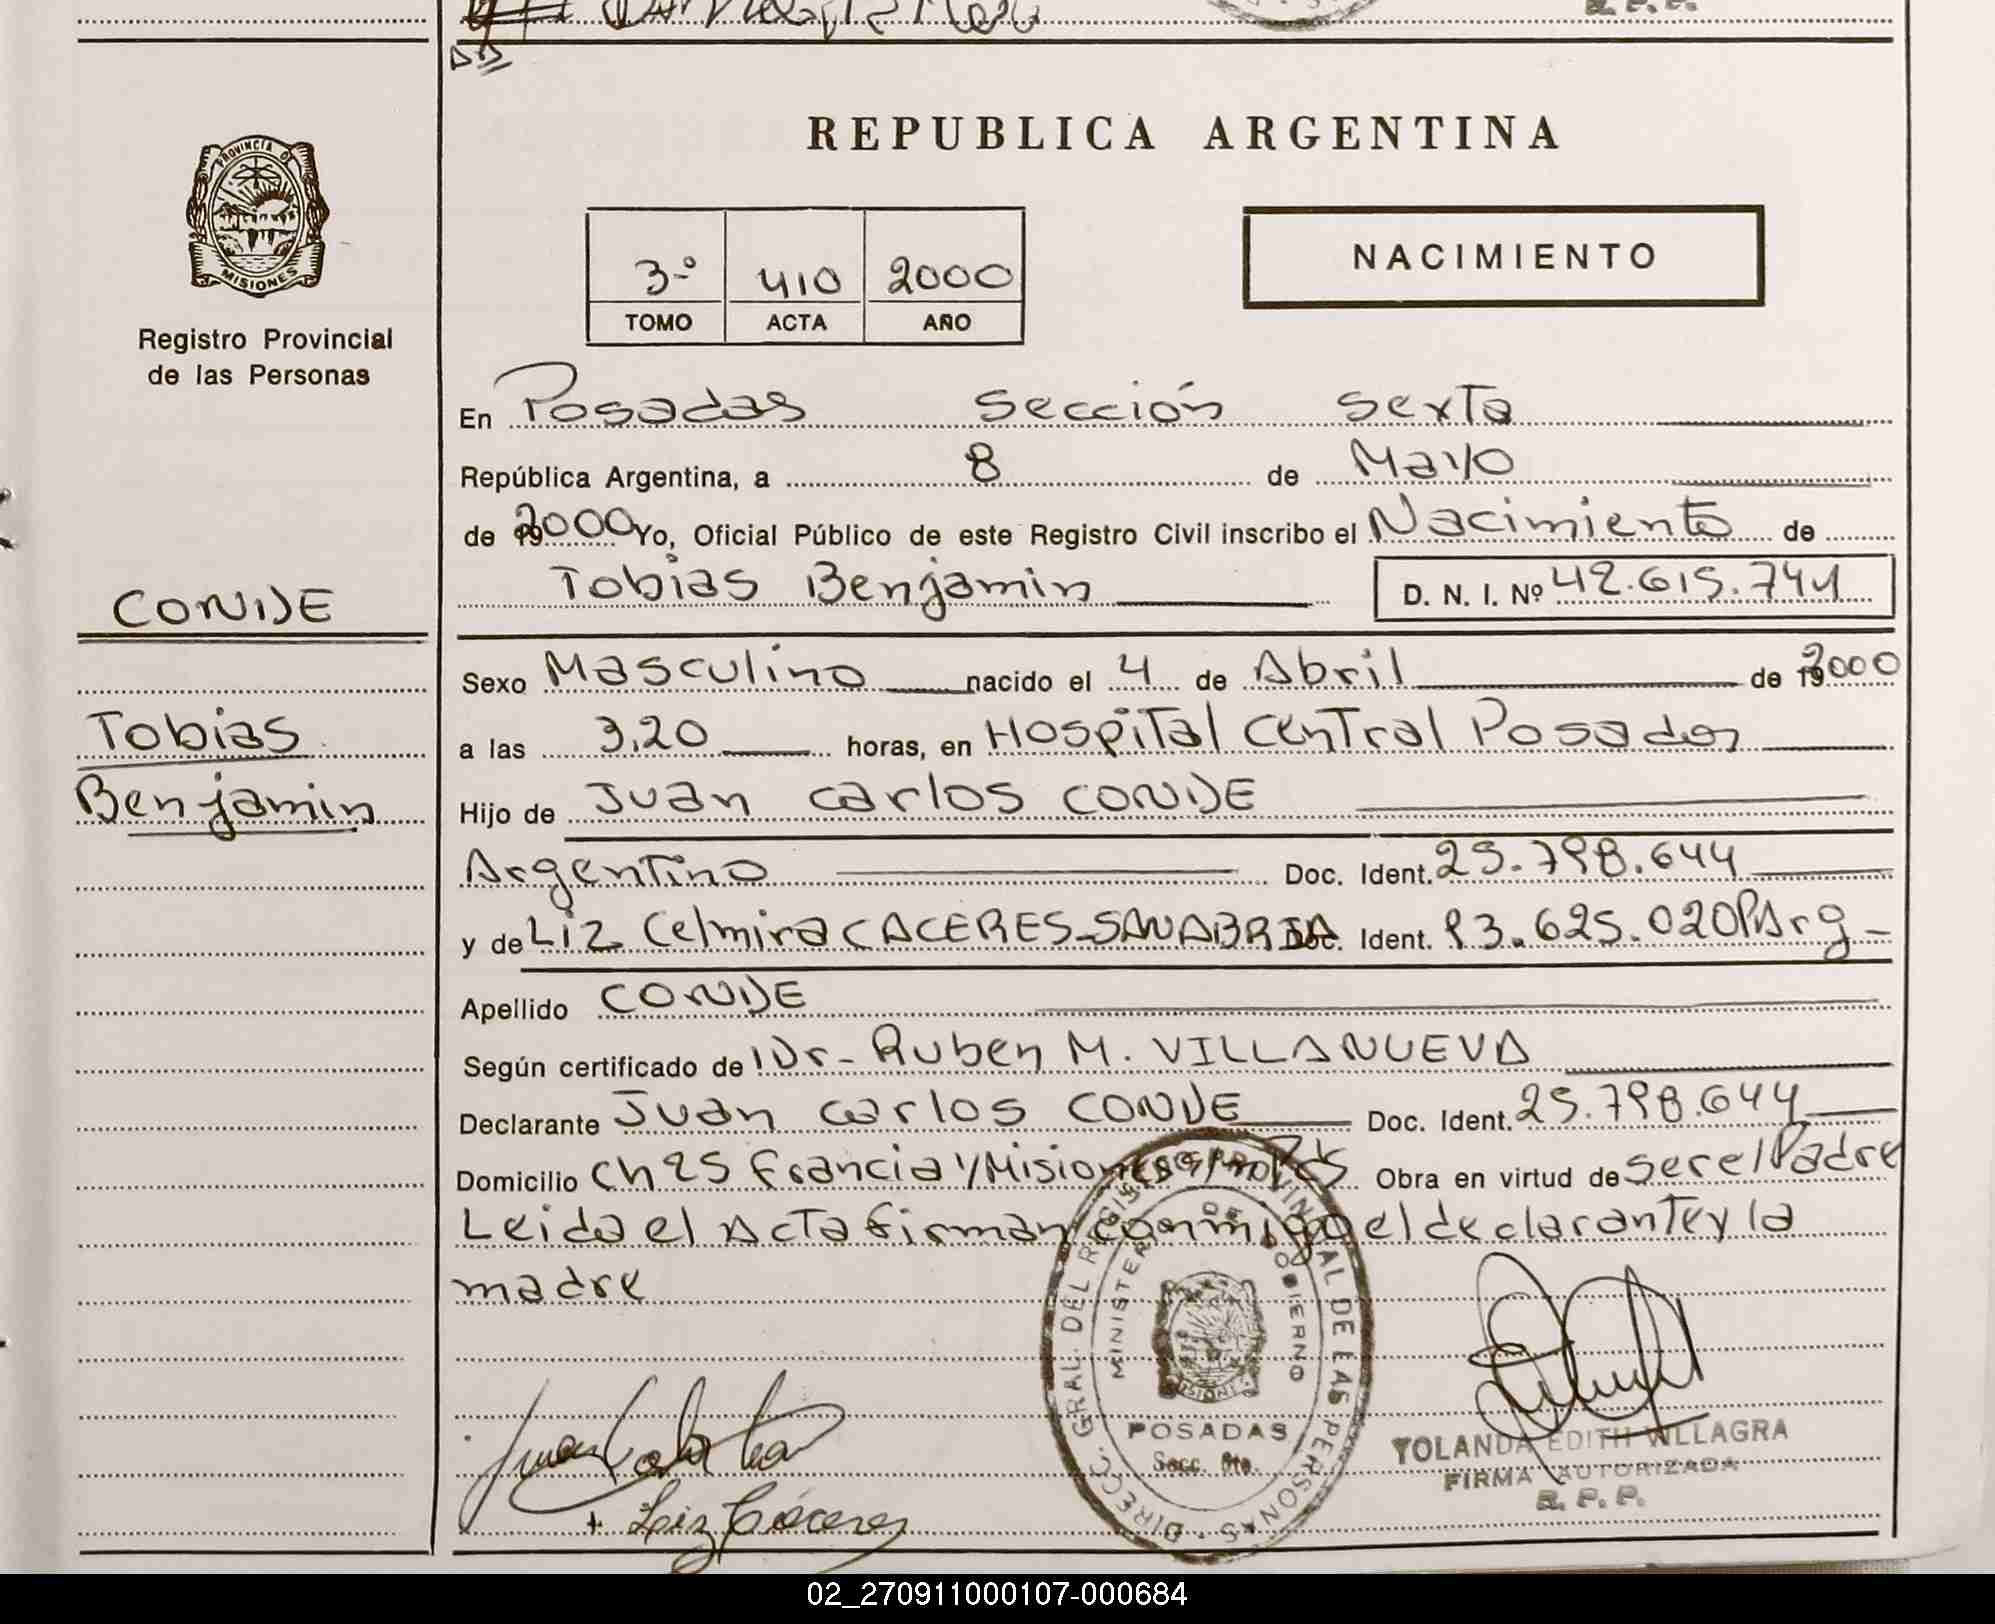 PROVINCIA DE
MISIONES
Registro Provincial
de las Personas
CONDE
Tobias
Benjamin
REPUBLICA ARGENTINA
3º 410 2000
TOMO ACTA AÑO
NACIMIENTO
En Posadas Sección Sexta
República Argentina, a 8 de Mayo
de 2000 Yo, Oficial Público de este Registro Civil inscribo el Nacimiento de
Tobias Benjamin D. N. I. Nº 42.615.741
Sexo Masculino nacido el 4 de Abril de 2000
a las 3,20 horas, en Hospital Central Posadas
Hijo de Juan Carlos CONDE
Argentino Doc. Ident. 25.798.644
y de Liz Celmira CACERES-SANABRIA Doc. Ident. 93.625.020 P/Arg-
Apellido CONDE
Según certificado de Dr- Ruben M. VILLANUEVA
Declarante Juan Carlos CONDE Doc. Ident. 25.798.644
Domicilio Ch 25 Francia y Misiones Obra en virtud de ser el Padre
Leida el Acta firman conmigo el declarante y la
madre
DIREC. GRAL. DEL REGISTRO PROVINCIAL DE LAS PERSONAS
MINISTERIO DE GOBIERNO
MISIONES
POSADAS
Secc. 6ta.
YOLANDA EDITH VILLAGRA
FIRMA AUTORIZADA
R. P. P.
+ Liz Cáceres
02_270911000107-000684